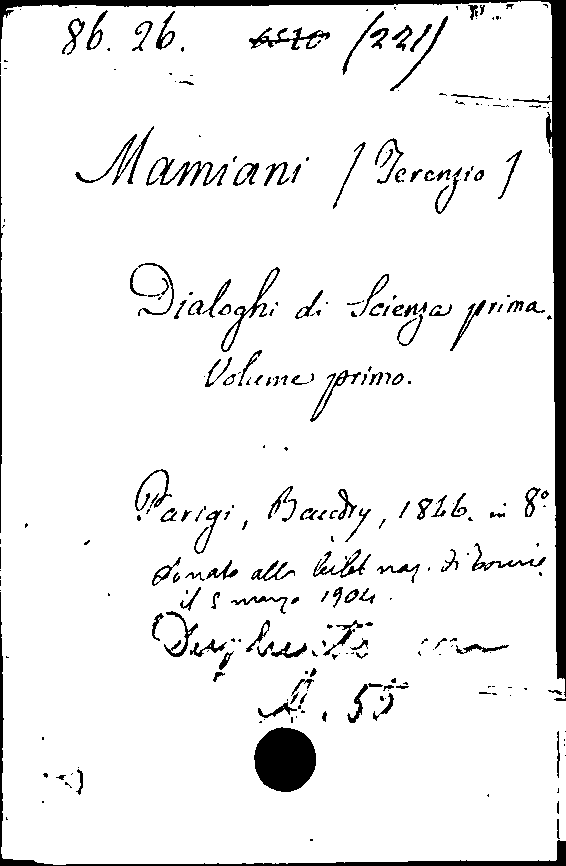 86. 26. 6510 (221)
Mamiani (Terenzio)
Dialoghi di Scienza prima.
Volume primo.
Parigi, Baudry, 1846. in 8°
donato alla bibl naz. di Torino
il 5 marzo 1904.
A. 55